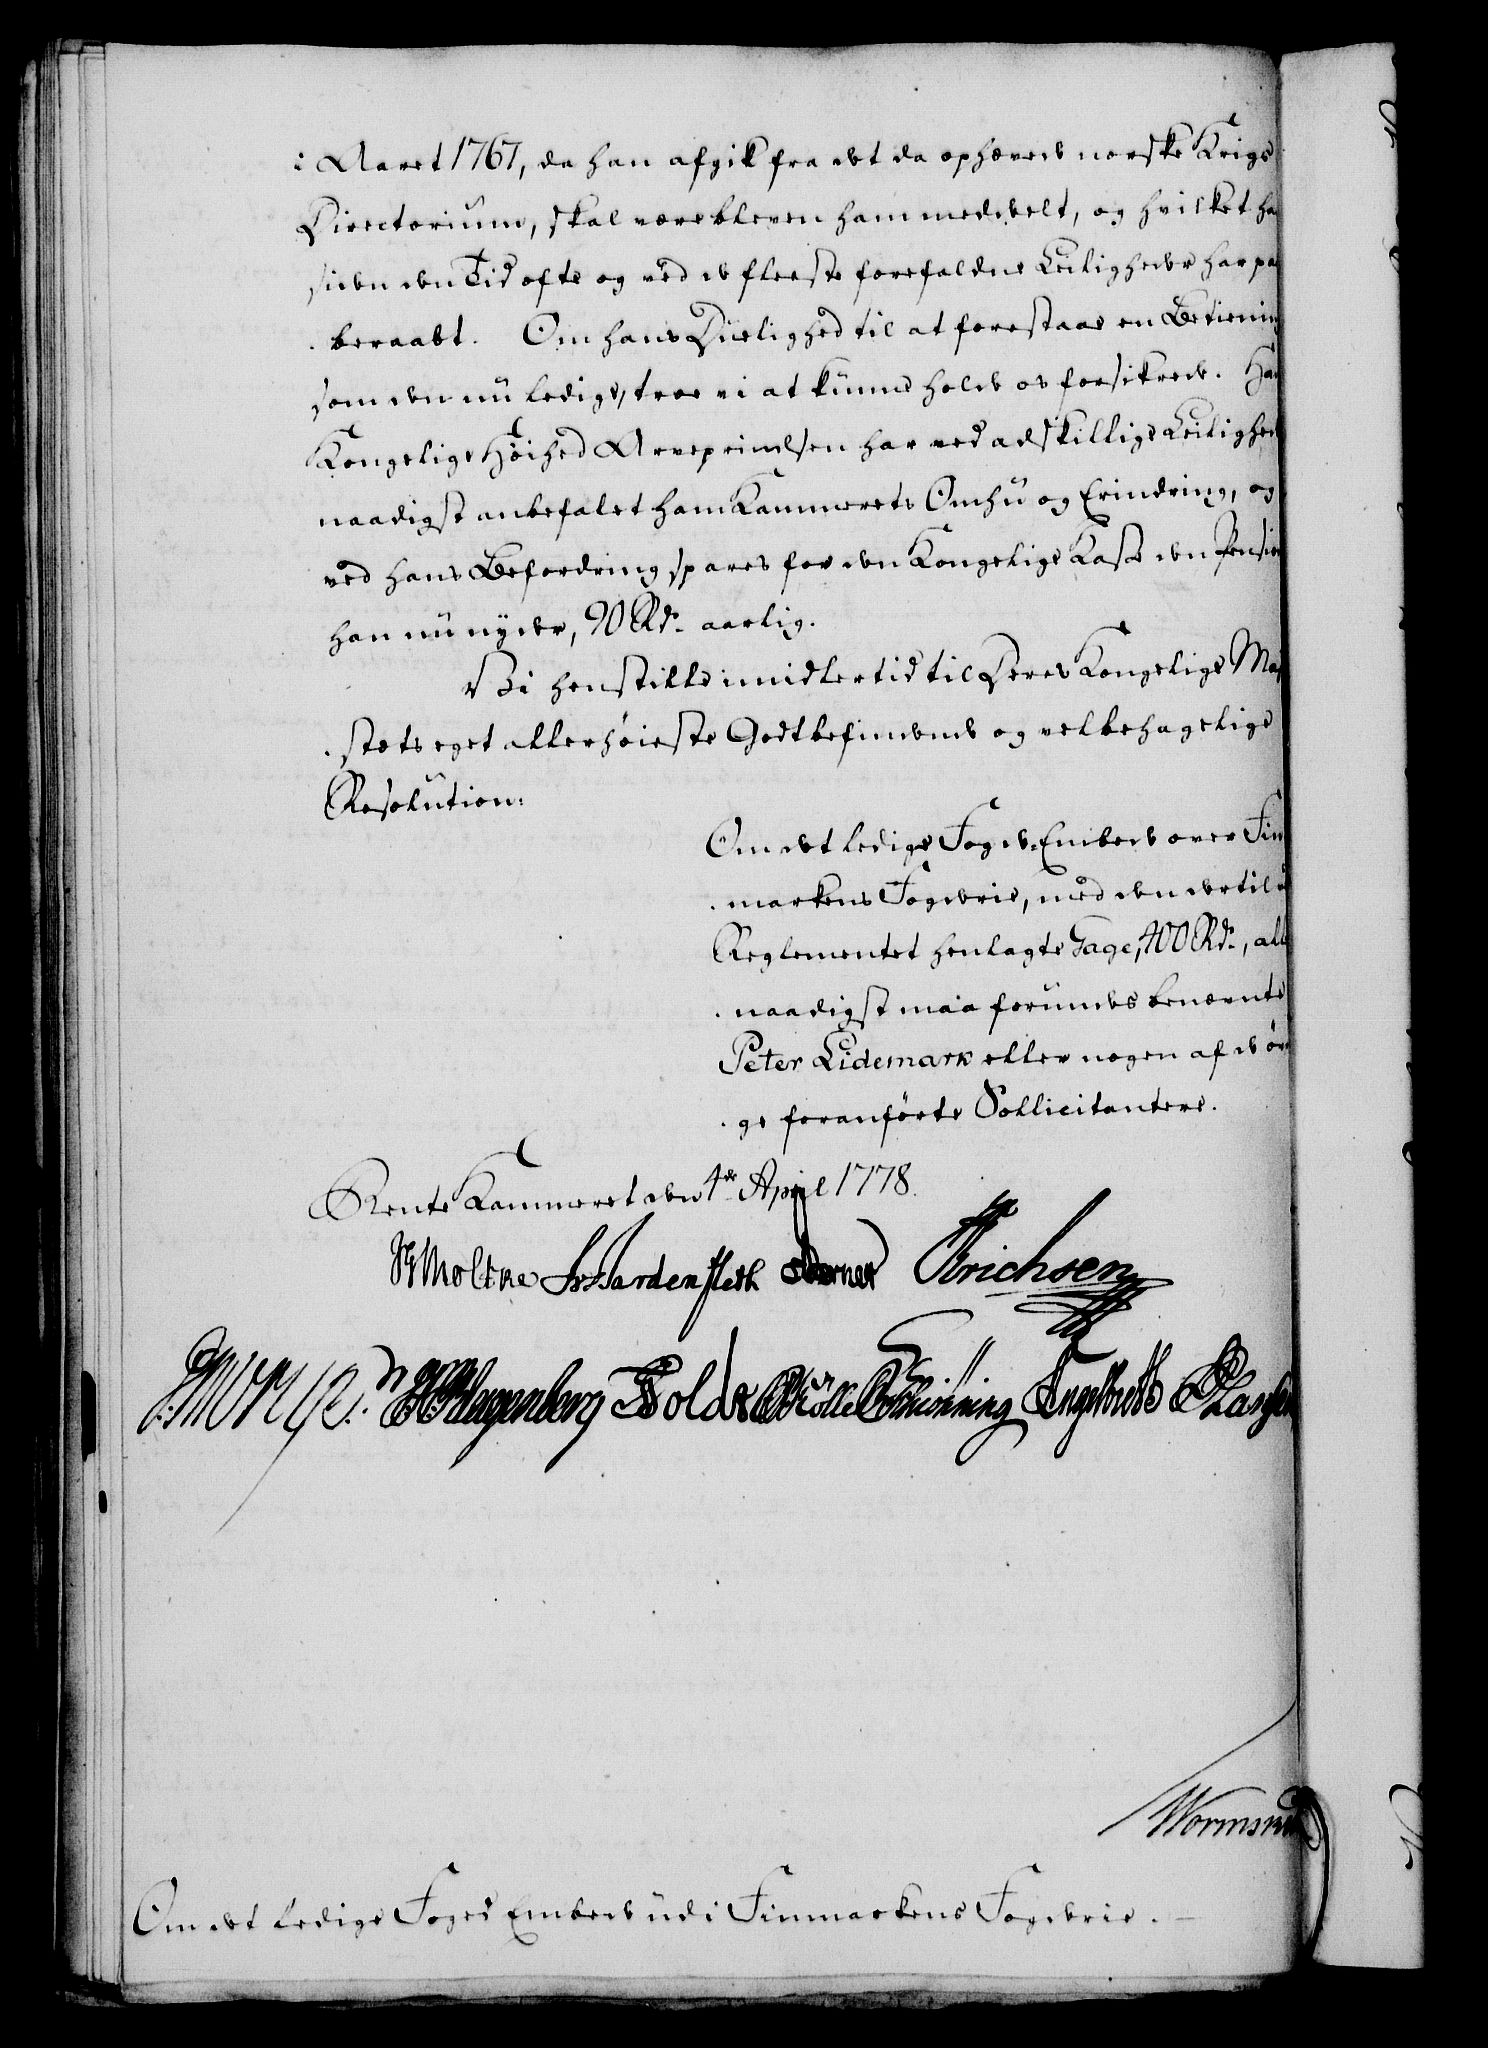 i Aaret 1767, da han afgik fra det da ophævede norske Krigs
Directorium, skal være bleven ham meddeelt, og hvilket ha
siden den Tid ofte og ved de fleeste forefaldne Leiligheder har paa
beraabt. Om hans Duelighed til at forestaae en Betiening
som den nu ledige, troe vi at kunne holde os forsikrede. Han
Kongelige Høihed Arveprindsen har ved adskillige Leilighed
naadigst anbefalet ham Kammerets Omhu og Erindring, og
ved hans Befordring spares for den Kongelige Kasse den Pension
han nu nyder, 90 Rdr. aarlig.
Vi henstille imidlertid til Deres Kongelige Maj
stæts eget allerhøieste Godtbefindende og velbehagelige
Resolution:
Om det ledige Fogde-Embede over Fin
markens Fogderie, med den dertil i
Reglementet henlagte Gage, 400 Rdr., all
naadigst maa forundes benævnte
Peter Lidemark eller nogen af de øv
ge foranførte Sollicitantere.
Rente Kammeret den 4de April 1778.
Moltke Hardenfleth Erichsen
Klagenberg Holde Schiønning Engelbreth
Wormskiold
Om det ledige Foged Embede udi Finmarkens Fogderie.